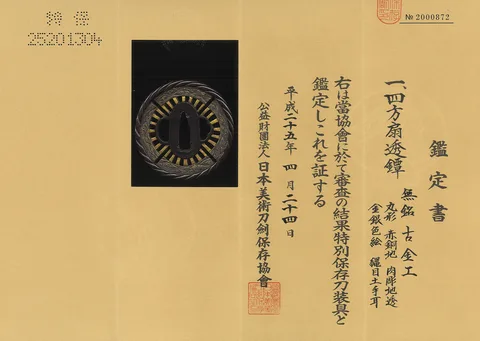 № 2000872
鑑定書
一、四方扇透鐔
無銘 古金工
丸形 赤銅地 肉彫地透
金銀色絵 縄目土手耳
右は當協會に於て審査の結果特別保存刀装具と
鑑定しこれを証する
平成二十五年 四月二十四日
公益財團法人 日本美術刀劍保存協會
特保
25201304